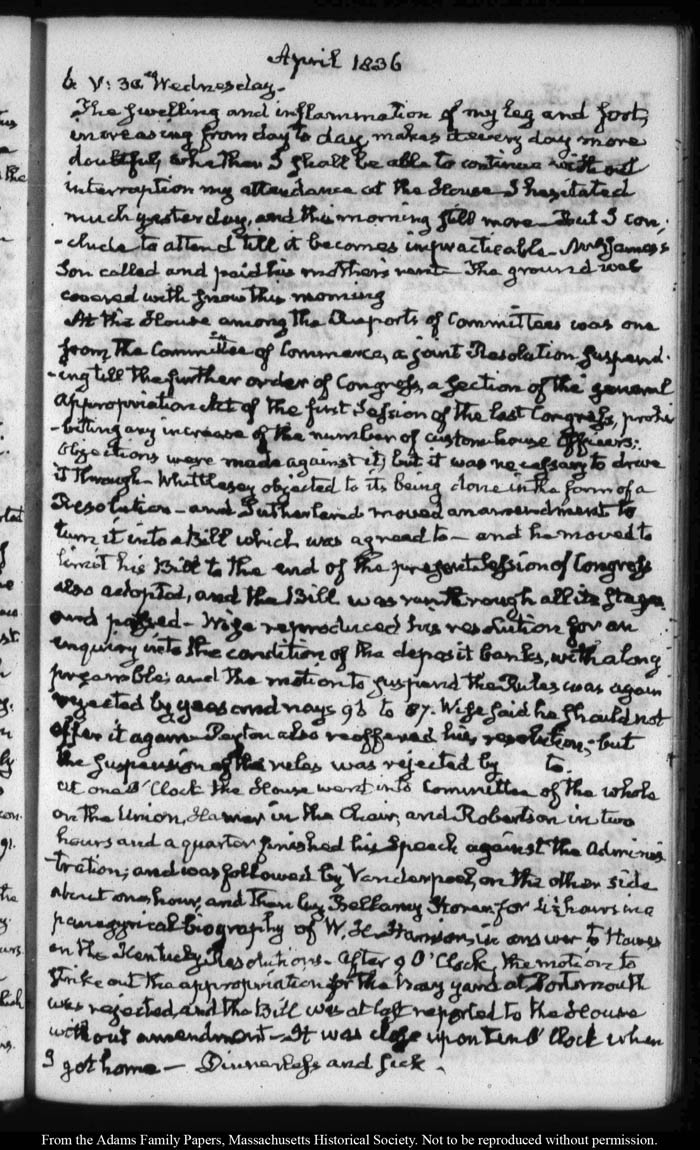 April 1836
6. V: 30. Wednesday.
The swelling and inflammation of my leg and foot,
increasing from day to day, makes it every day more
doubtful, whether I shall be able to continue without
interruption my attendance at the House. I hesitated
much yesterday, and this morning still more. But I con-
-clude to attend till it becomes impracticable. Mrs James's
Son called and paid his mother's rent. The ground was
covered with snow this morning
At the House among the Reports of Committees was one
from the Committee of Commerce, a joint Resolution suspend-
-ing till the further order of Congress, a section of the general
appropriation Act of the first Session of the last Congress, prohi
-biting any increase of the number of custom-house Officers:
Objections were made against it, but it was necessary to drive
it through. Whittlesey objected to its being done in the form of a
Resolution — and Sutherland moved an amendment to
turn it into a Bill which was agreed to — and he moved to
limit his Bill to the end of the present Session of Congress
also adopted, and the Bill was run through all its stages
and passed — Wise reproduced his resolution for an
enquiry into the condition of the deposit banks, with a long
preamble; and the motion to suspend the Rules was again
rejected by yeas and nays 91 to 87. Wise said he should not
offer it again. Peyton also reoffered his resolution; but
the suspension of the rules was rejected by to.
At one O'Clock the House went into Committee of the whole
on the Union, Hamer in the Chair, and Robertson in two
hours and a quarter finished his Speech against the Adminis
-tration; and was followed by Vanderpoel, on the other side
about one hour, and then by Bellamy Storer for hours in a
panegyrical biography of W. H. Harrison, in answer to Hawes
on the Kentucky Resolutions. After 9 O'Clock, the motion to
strike out the appropriation for the Navy yard at Portsmouth
was rejected, and the Bill was at last reported to the House
without amendment — It was close upon ten O'Clock when
I got home — Dinnerless and sick.
From the Adams Family Papers, Massachusetts Historical Society. Not to be reproduced without permission.